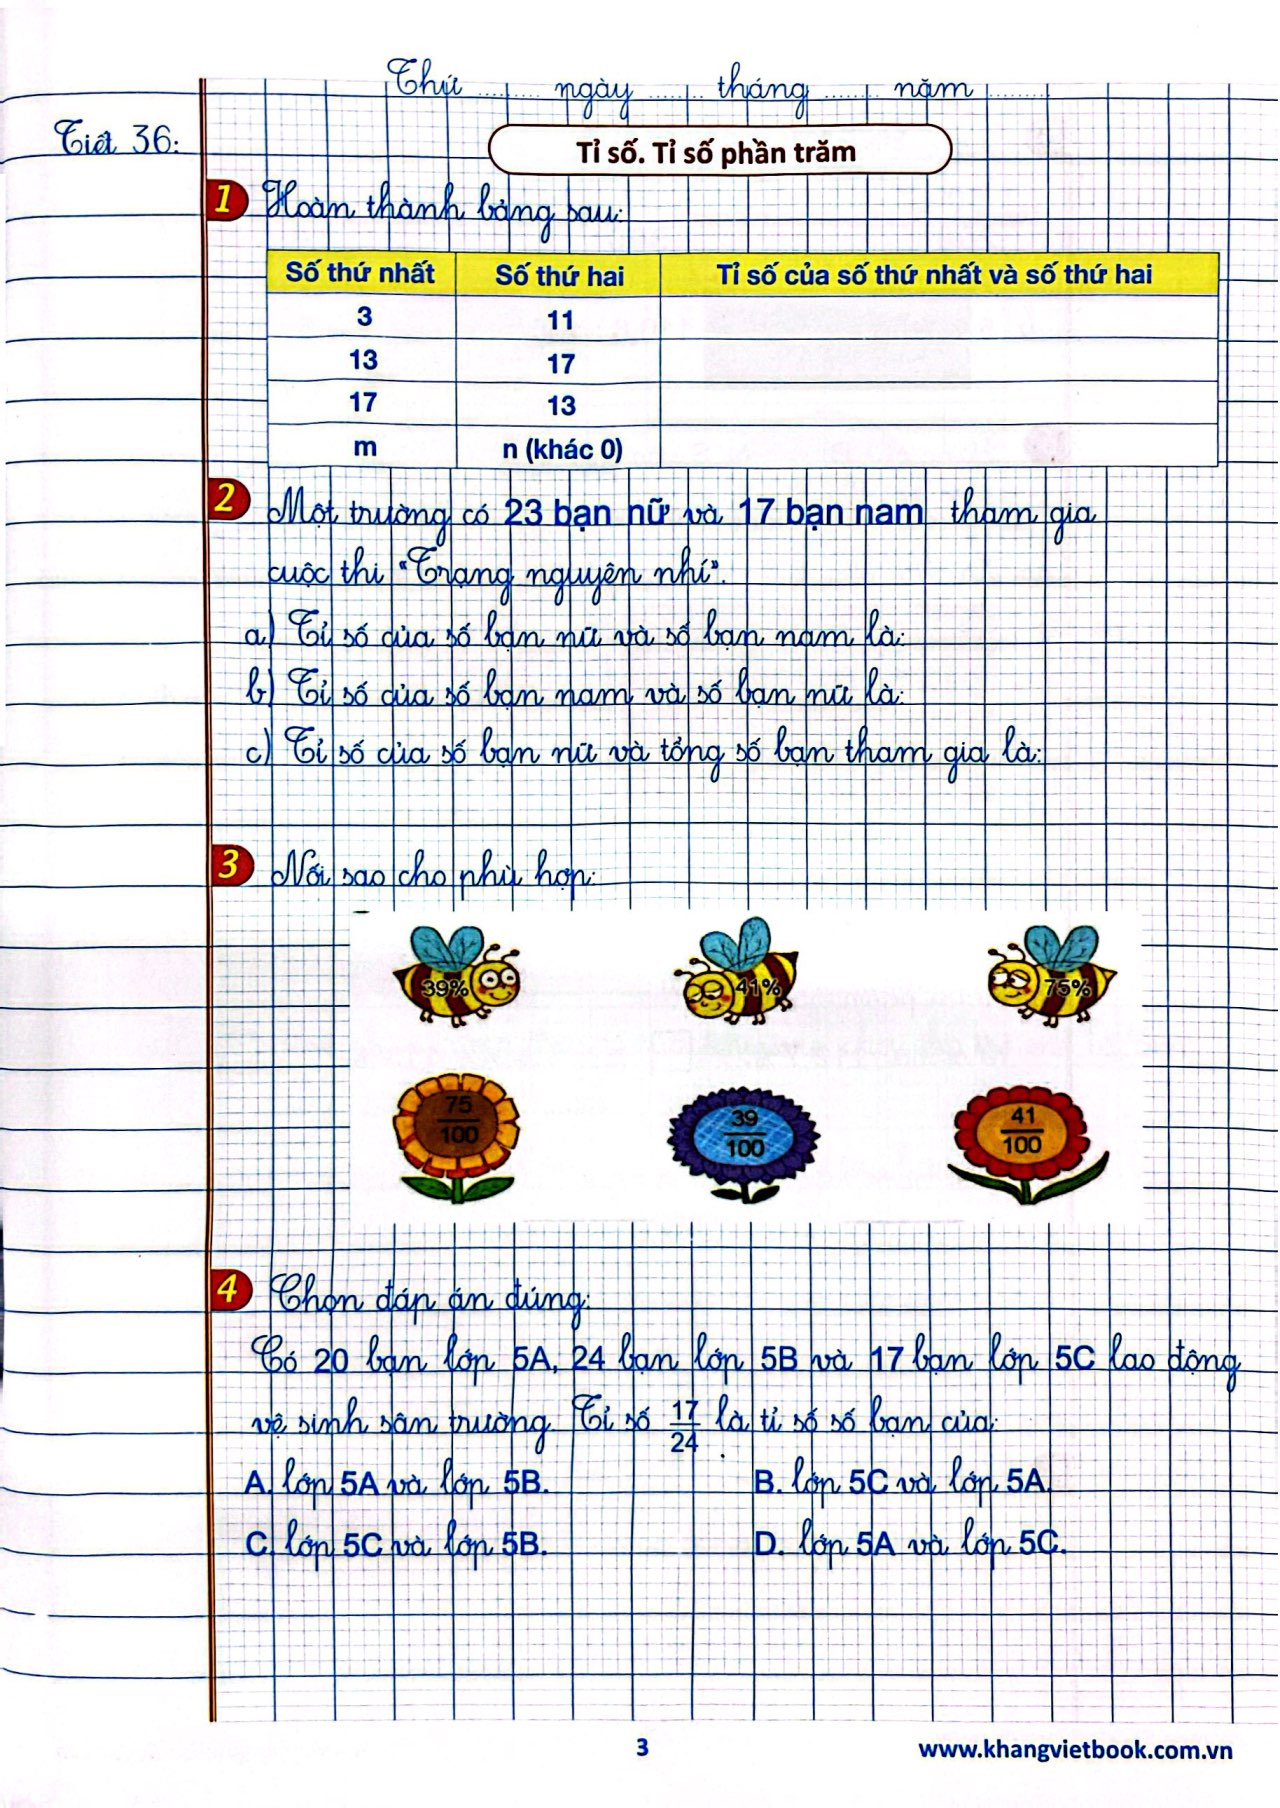 Thứ ......... ngày ........ tháng ........ năm .........
Tiết 36:
Tỉ số. Tỉ số phần trăm
1 Hoàn thành bảng sau:
Số thứ nhất Số thứ hai Tỉ số của số thứ nhất và số thứ hai
3 11
13 17
17 13
m n (khác 0)
2 Một trường có 23 bạn nữ và 17 bạn nam tham gia
cuộc thi "Trạng nguyên nhí".
a) Tỉ số của số bạn nữ và số bạn nam là:
b) Tỉ số của số bạn nam và số bạn nữ là:
c) Tỉ số của số bạn nữ và tổng số bạn tham gia là:
3 Nối sao cho phù hợp:
39% 41% 75%
75/100 39/100 41/100
4 Chọn đáp án đúng:
Có 20 bạn lớp 5A, 24 bạn lớp 5B và 17 bạn lớp 5C lao động
vệ sinh sân trường. Tỉ số 17/24 là tỉ số số bạn của:
A. lớp 5A và lớp 5B. B. lớp 5C và lớp 5A.
C. lớp 5C và lớp 5B. D. lớp 5A và lớp 5C.
3 www.khangvietbook.com.vn